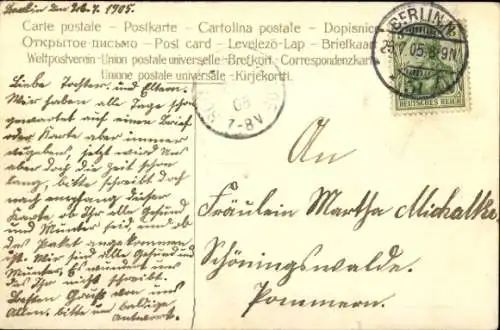 Berlin den 28.7.1905.
Carte postale – Postkarte – Cartolina postale – Dopisnice
Открытое письмо – Post card – Levelező-Lap – Briefkaart
Weltpostverein - Union postale universelle - Brefkort - Correspondenzkarte
Unione postale universale - Kirjekortti.
BERLIN
28.7.05. 8-9N
DEUTSCHES REICH
05
7-8V
Liebe Tochter und Eltern.
Wir haben alle Tage schon
gewartet auf einen Brief
oder Karte aber immer
vergebens, jetzt wird uns
aber doch die Zeit schon
lang, bitte schreibt doch
nach empfang dieser
Karte ob Ihr alle Gesund
und Munter seid, und ob
das Paket angekommen
ist. Wir sind alle Gesund und
Munter. Es wundert uns
das Ihr nicht schreibt.
Besten Gruß von uns
Allen. bitte um baldige
Antwort.
An
Fräulein Martha Michalke
Schöningswalde.
Pommern.